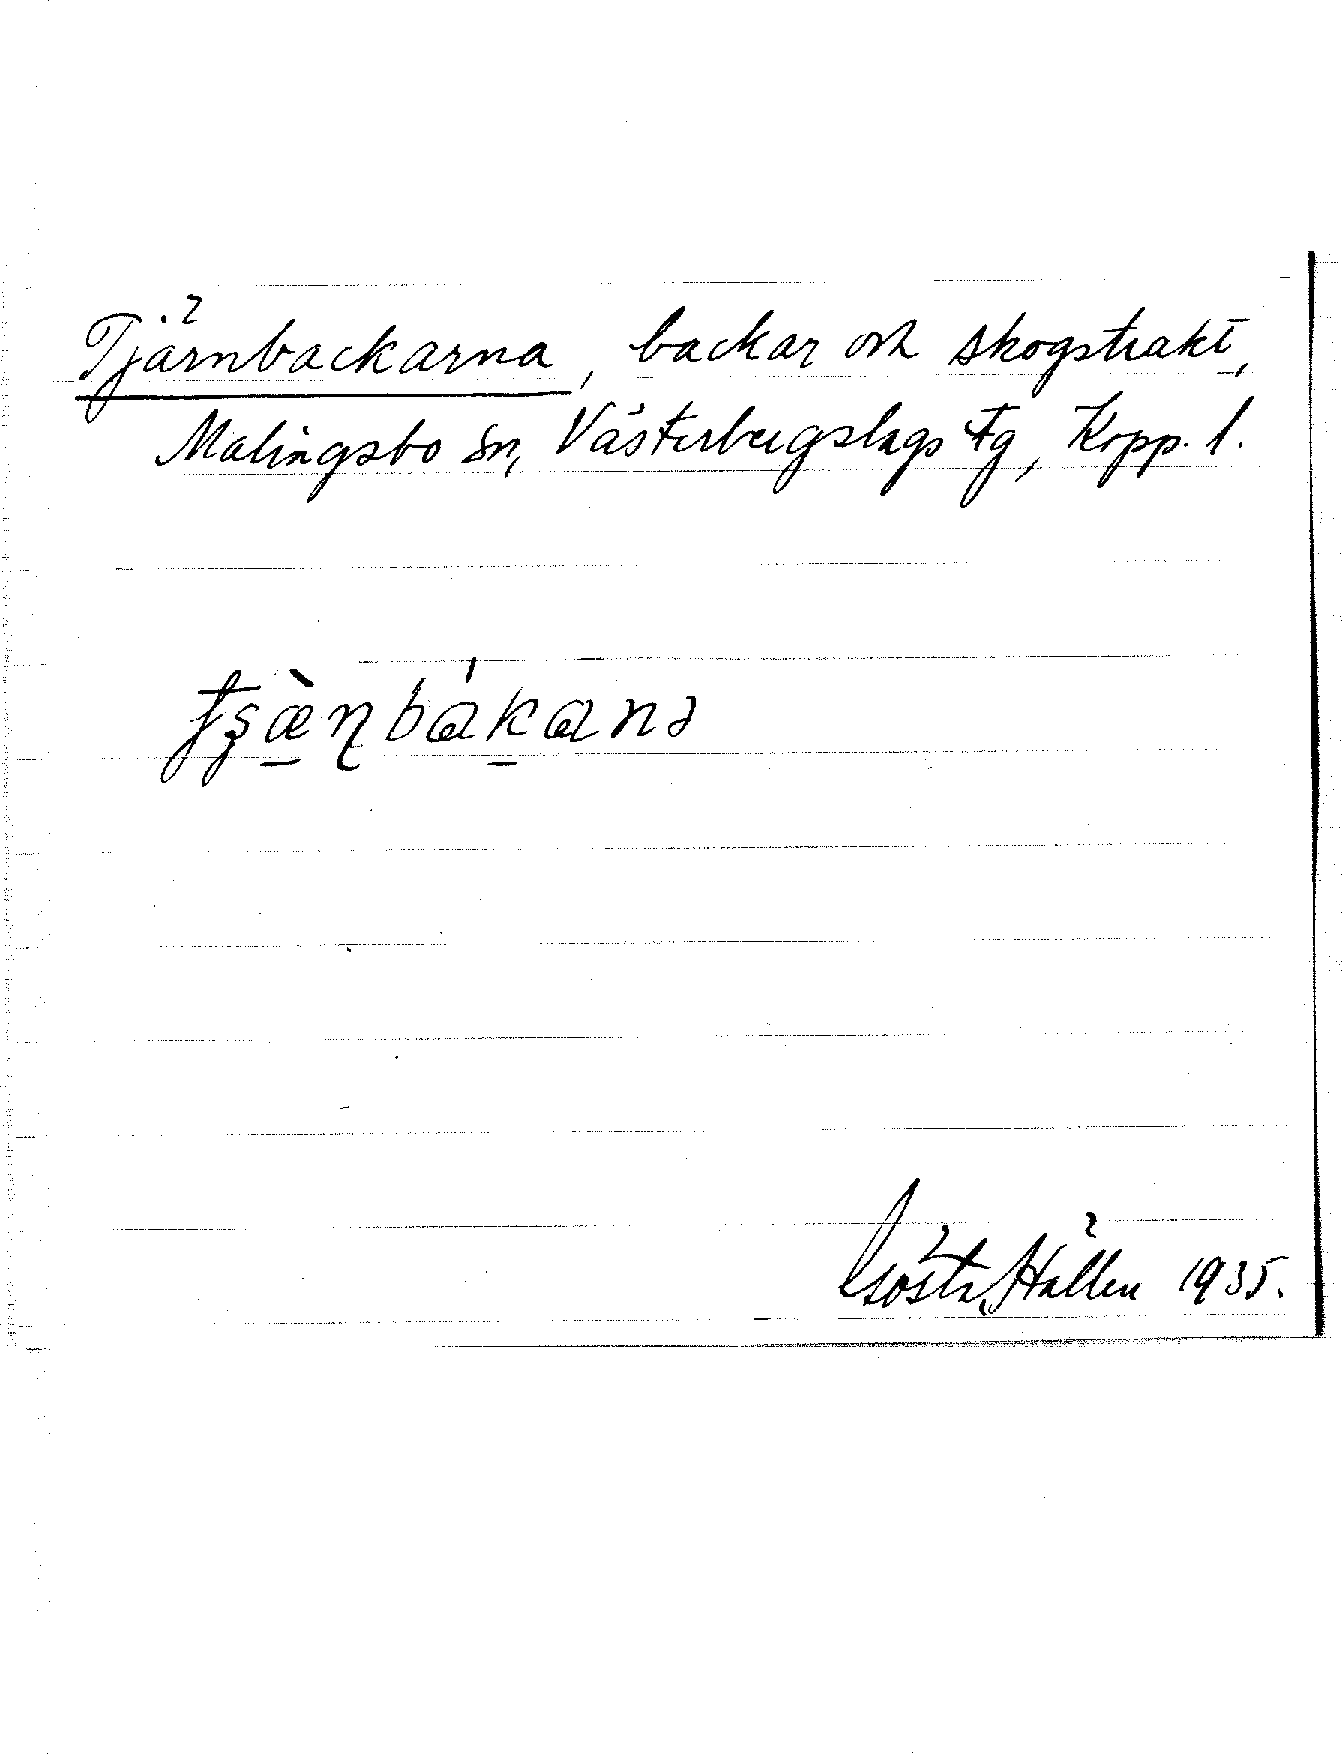 Tjärnbackarna, backar och skogstrakt,
Malingsbo sn, Västerbergslags tg, Kopp. l.
tʂæ̀ɳbákanə
Gösta Hallén 1935.